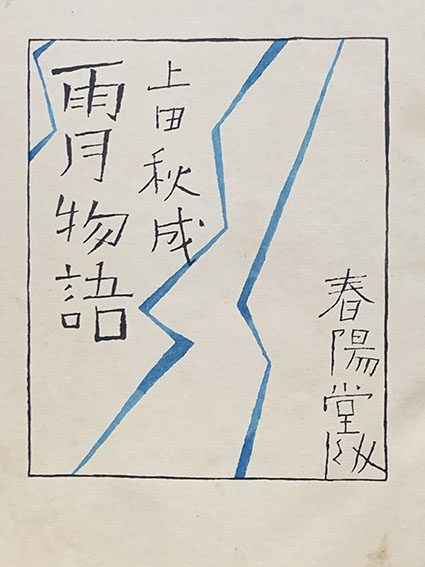 上田秋成
雨月物語
春陽堂